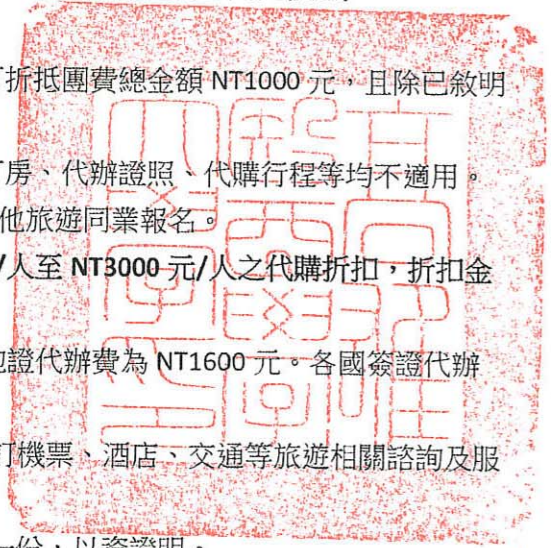 折抵團費總金額 NT1000 元，且除已敘明
房、代辦證照、代購行程等均不適用。
他旅遊同業報名。
/人至 NT3000 元/人之代購折扣，折扣金
證代辦費為 NT1600 元。各國簽證代辦
機票、酒店、交通等旅遊相關諮詢及服
一份，以資證明。